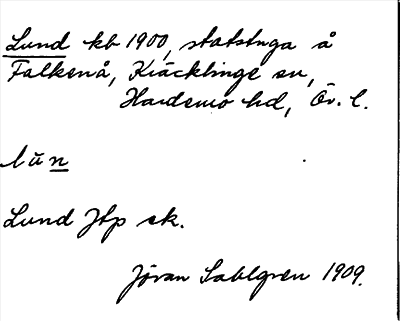 Lund kb 1900, statstuga å
Falkenå, Kräcklinge sn,
Hardemo hd, Ör. l.
lŭn
Lund Jfp ek.
Jöran Sahlgren 1909.